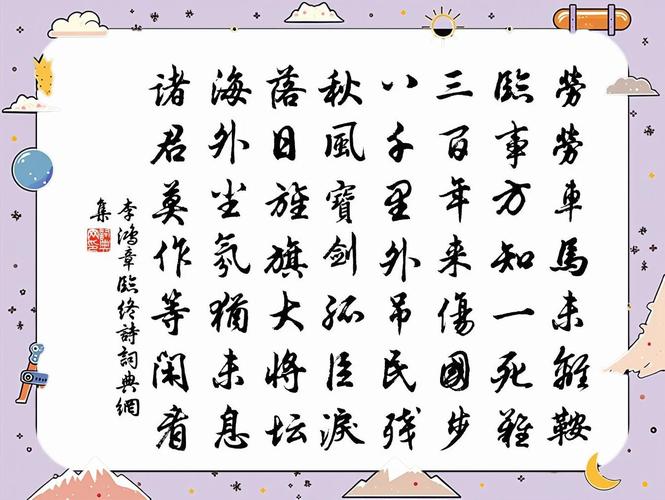 勞勞車馬未離鞍
臨事方知一死難
三百年来傷國步
八千里外吊民残
秋風寶劍孤臣淚
落日旌旗大將坛
海外尘氛猶未息
諸君莫作等闲看
李鴻章臨终詩詞典網
集